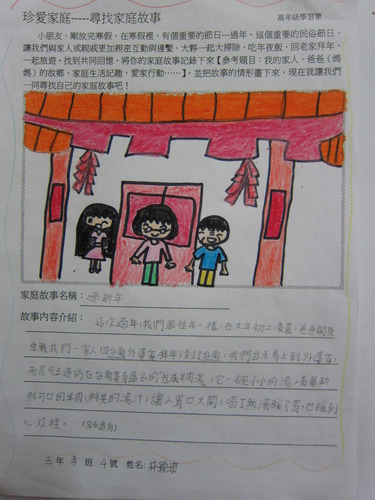 珍愛家庭-----尋找家庭故事
高年級學習單
小朋友，剛放完寒假，在寒假裡，有個重要的節日─過年。這個重要的民俗節日，
讓我們與家人或親戚更加親密互動與連繫，大夥一起大掃除、吃年夜飯、回老家拜年、
一起旅遊。找到共同回憶，將你的家庭故事記錄下來【參考題目：我的家人、爸爸(媽
媽)的故鄉、家庭生活記趣、愛家行動……】，並把故事的情形畫下來，現在就讓我們
一同尋找自己的家庭故事吧！
家庭故事名稱： 過新年
故事內容介紹： 這次過年，我們學往年一樣，在大年初二凌晨，爸爸開
車載我們一家人回台南外婆家拜年，到了台南，我們並未馬上到外婆家，
而是先去道的在台南享有盛名的 羊肉湯，它一碗小小的湯，有著新
鮮可口的羊肉，鮮美的湯汁，讓人胃口大開，喝了熱湯暖了胃，也暖到
心坎裡。
三年 班 4 號 姓名： 林